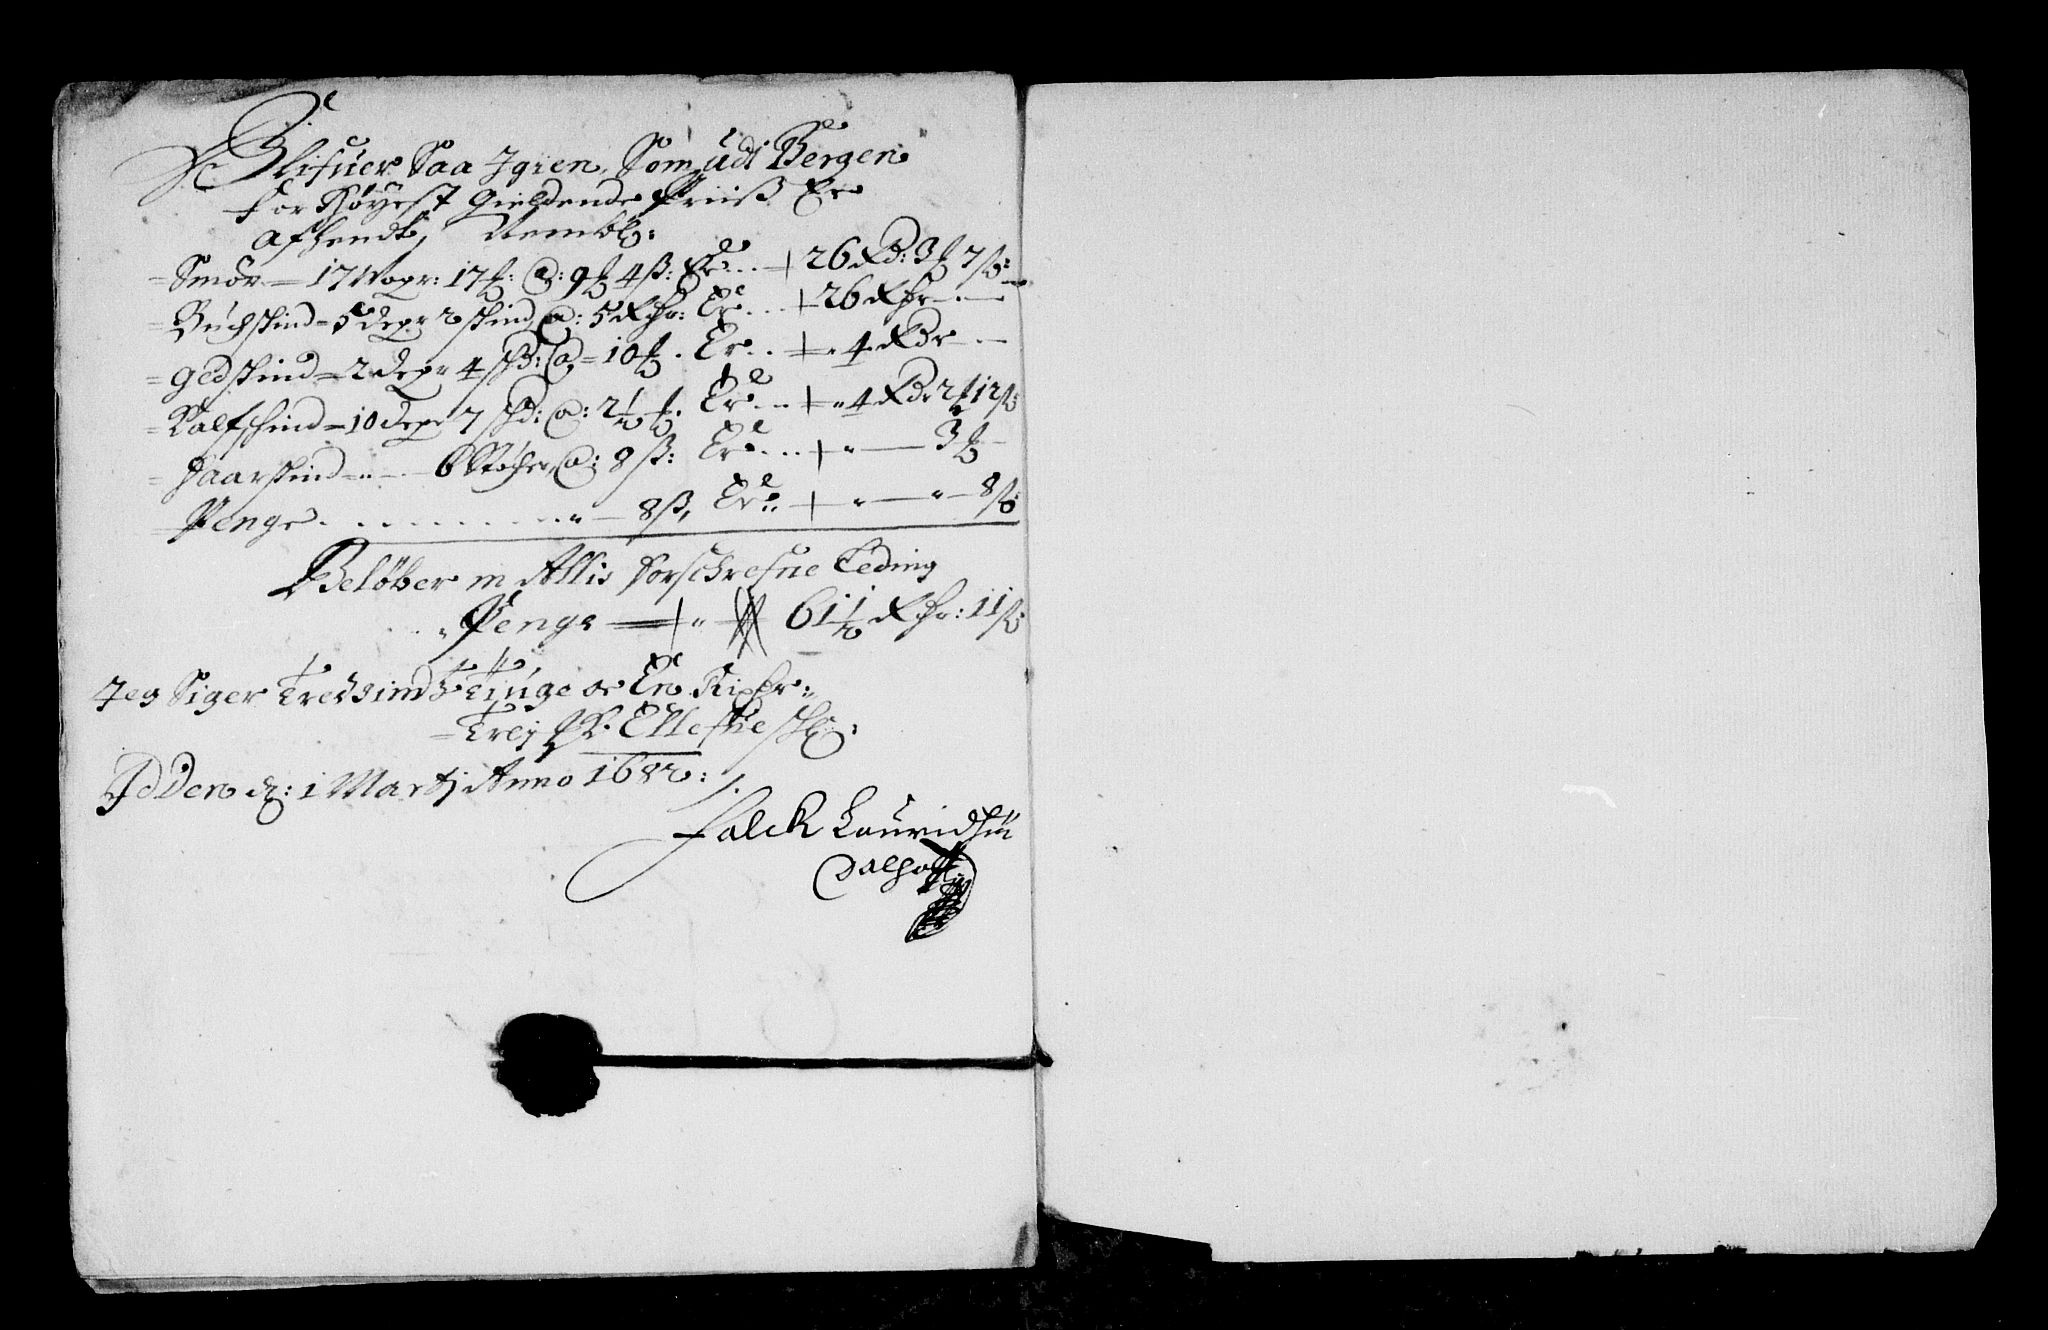 Blifuer Saa Igien, Som udi Bergen
for Høyest gieldende Priiss Er
afhendt, Nemblig:
Smör — 17 Woger: 17 ℔: @: 9 ℔ 4 ß: Er — 26 Rd: 3 ℔ 7 ß:
Buchskind = 5 deger 2 skind @: 5 Rdr: Er — 26 Rdr
Gedskind = 2 deger 4 skd: @ = 10 ℔. Er — 4 Rdr
Kalfskind = 10 deger 7 skd: @: 2½ ℔. Er — 4 Rdr 2 ℔ 12 ß
Haarskind — 6 Støcher @: 8 ß: Er — 3 ℔
Penge — 8 ß, Er — 8 ß
Beløber in Allis forschrefne Leding
Penge — 61½ Rdr: 11 ß
Jeg Siger Tredsindstiuge oc En Rixdr:
Trej Ellefue schl:
Den d: 1 Martj Anno 1682:
Falck Lauridtzen
Dalhoff